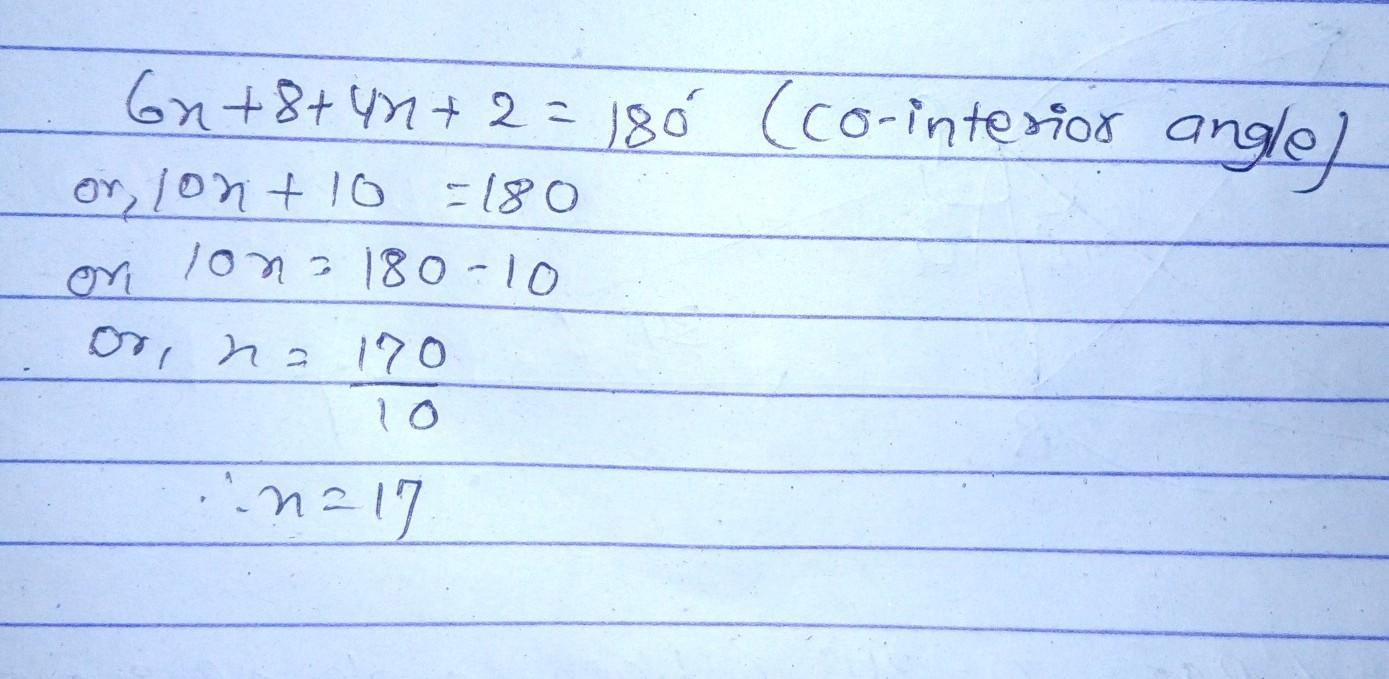 6x+8+4x+2 = 180° (co-interior angle)
or, 10x + 10 = 180
or 10x = 180 - 10
or, x = 170
10
∴ x = 17